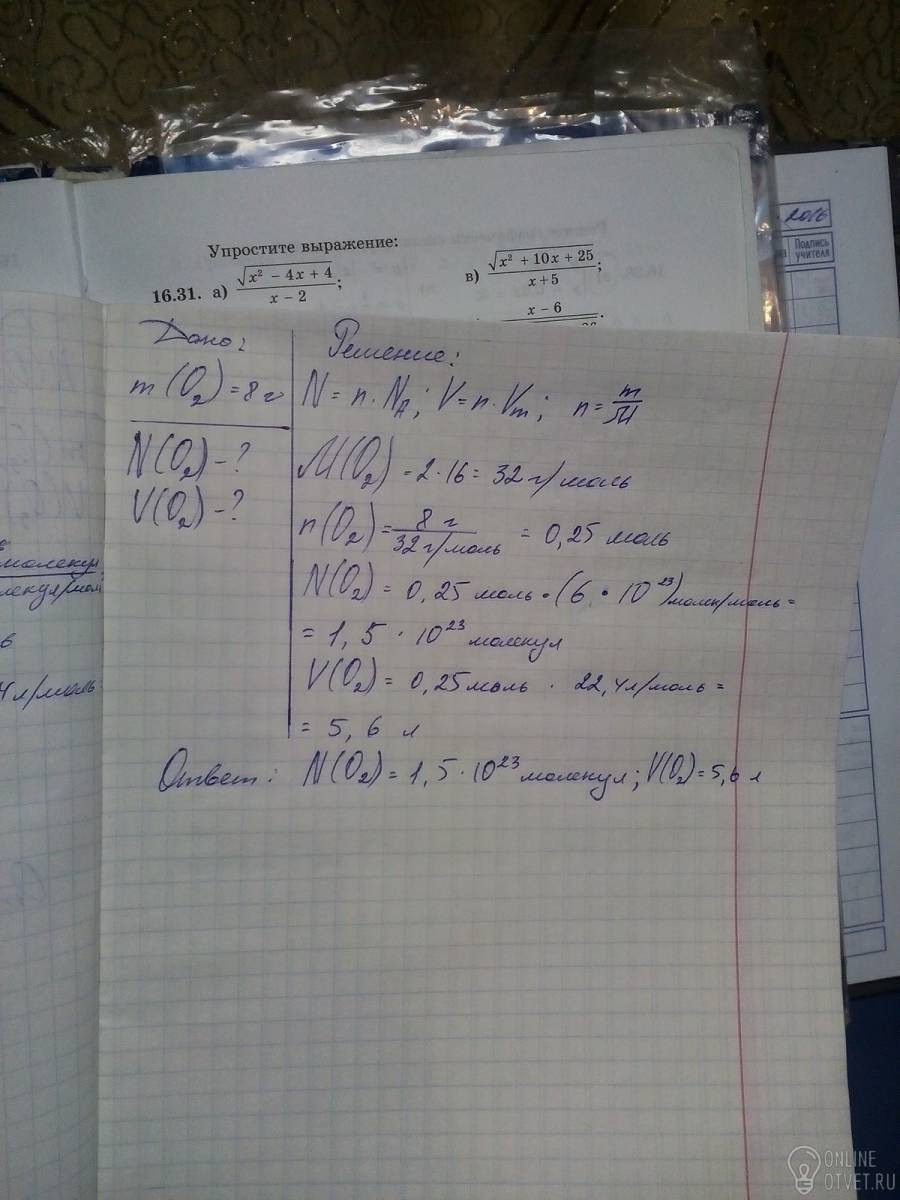 2016
Подпись
учителя
Упростите выражение:
16.31. а) √(x² − 4x + 4) / (x − 2); в) √(x² + 10x + 25) / (x + 5);
x − 6
Дано:
m(O₂) = 8 г
N(O₂) - ?
V(O₂) - ?
Решение:
N = n · N_A; V = n · V_m; n = m/M
M(O₂) = 2 · 16 = 32 г/моль
n(O₂) = 8 г / 32 г/моль = 0,25 моль
N(O₂) = 0,25 моль · (6 · 10²³) молек/моль =
= 1,5 · 10²³ молекул
V(O₂) = 0,25 моль · 22,4 л/моль =
= 5,6 л
Ответ: N(O₂) = 1,5 · 10²³ молекул; V(O₂) = 5,6 л
молекул
лекул/моль
4 л/моль
ONLINE
OTVET.RU